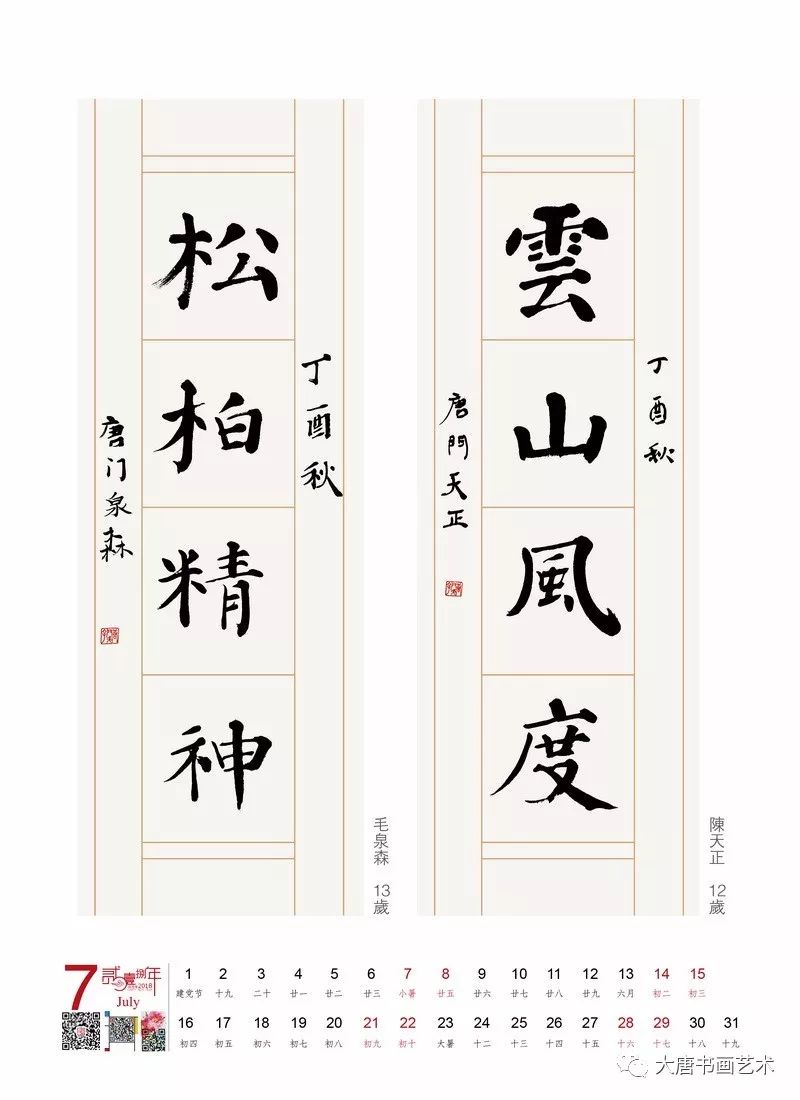 雲山風度
丁酉秋
唐門天正
陳天正 12歲
松柏精神
丁酉秋
唐门泉森
毛泉森 13歲
7
貳〇壹捌年
2018
July
1 2 3 4 5 6 7 8 9 10 11 12 13 14 15
建党节 十九 二十 廿一 廿二 廿三 小暑 廿五 廿六 廿七 廿八 廿九 六月 初二 初三
16 17 18 19 20 21 22 23 24 25 26 27 28 29 30 31
初四 初五 初六 初七 初八 初九 初十 大暑 十二 十三 十四 十五 十六 十七 十八 十九
大唐书画艺术